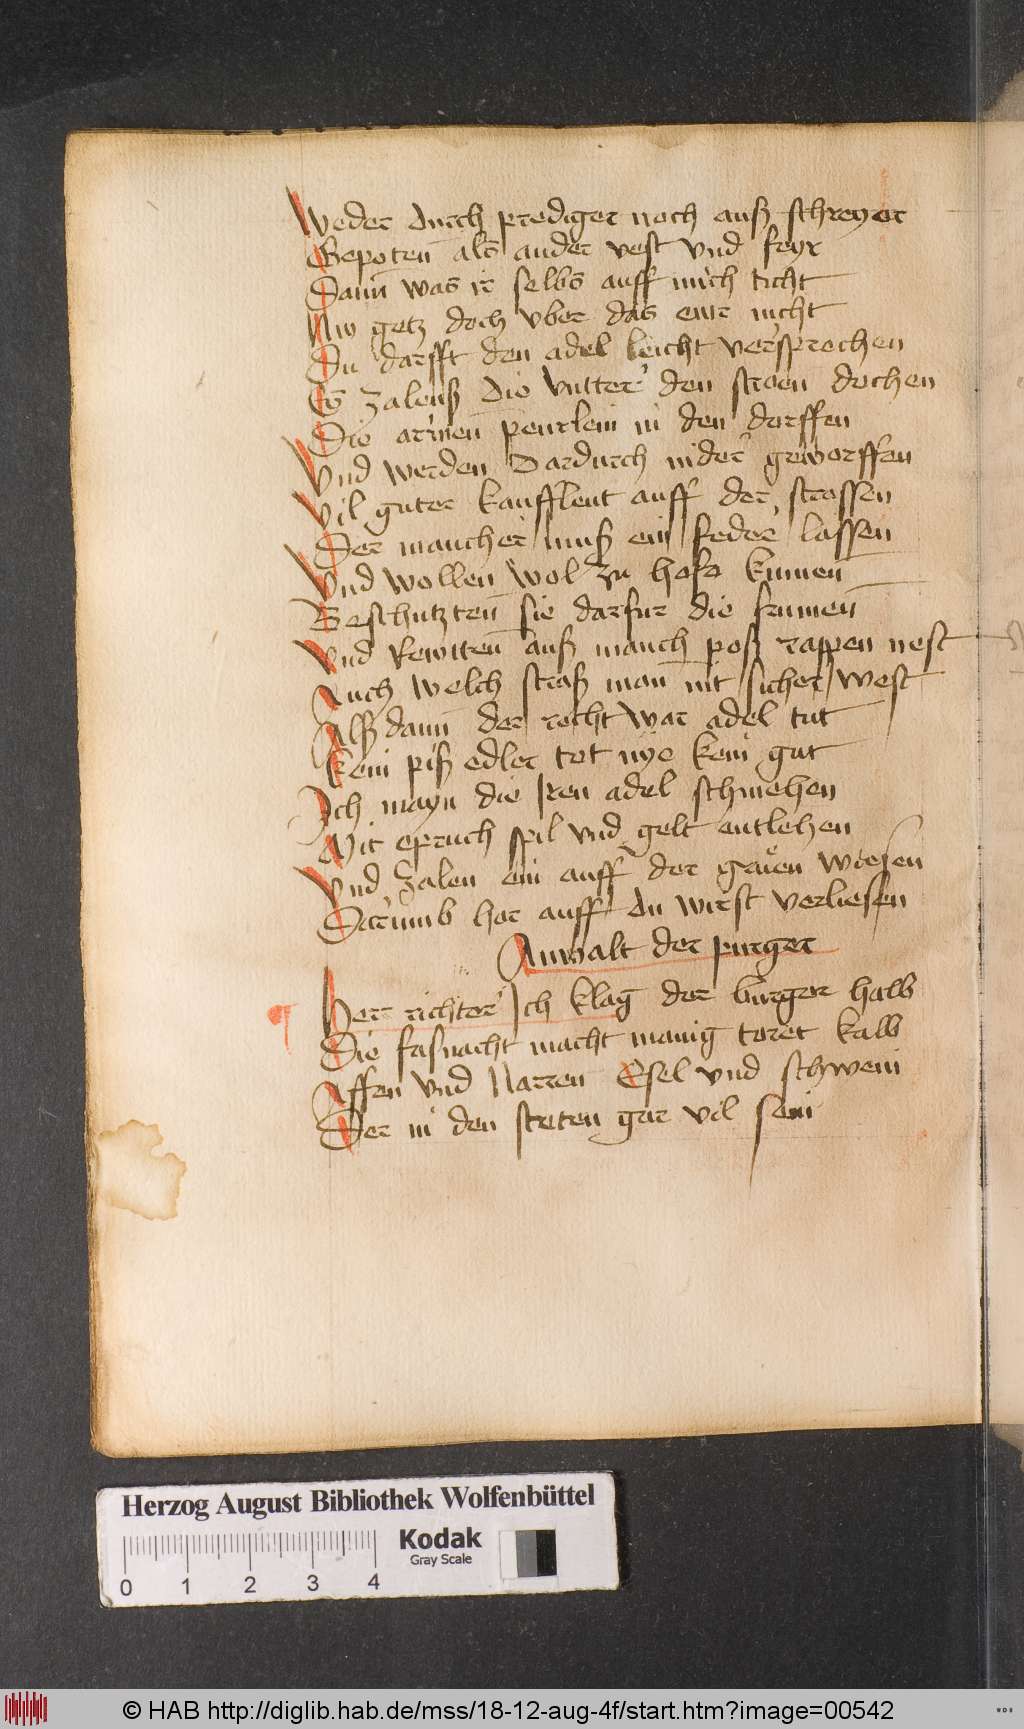 Weder durch prediger noch auß schreyer
Gepoten als ander vest vnd feyr
Dann was ir selbs auff mich ticht
Nw getz doch vber das ewr nicht
Du darfft den adel leicht versprochen
Es zalenß die vntter den stroen dochen
Die armen peurlein in den dorffen
Vnd werden dardurch nider geworffen
Vil guter kaufflent auff der strassen
Der mancher muß ein feder lassen
Vnd wollen wol zu hofe kumen
Beschutzten sie darfur die frumen
Vnd Rewtten auß manch poß rappen nest
Auch welch straß man nit sicher west
Alß dann der recht war adel tut
Kein piß edler tet nye kein gut
Ich mayn die Iren adel schmehen
Mit epruch spil vnd gelt entlehen
Vnd zalen ein auff der graen wiesen
Darumb hor auff du wirst verliesen
Anwalt der purger
Herr richter Ich klag der burger halb
Die fasnacht macht manig toret kalb
Affen vnd Narren Esel vnd schwein
Der in den steten gar vil sein
Herzog August Bibliothek Wolfenbüttel
Kodak
Gray Scale
0 1 2 3 4
© HAB http://diglib.hab.de/mss/18-12-aug-4f/start.htm?image=00542